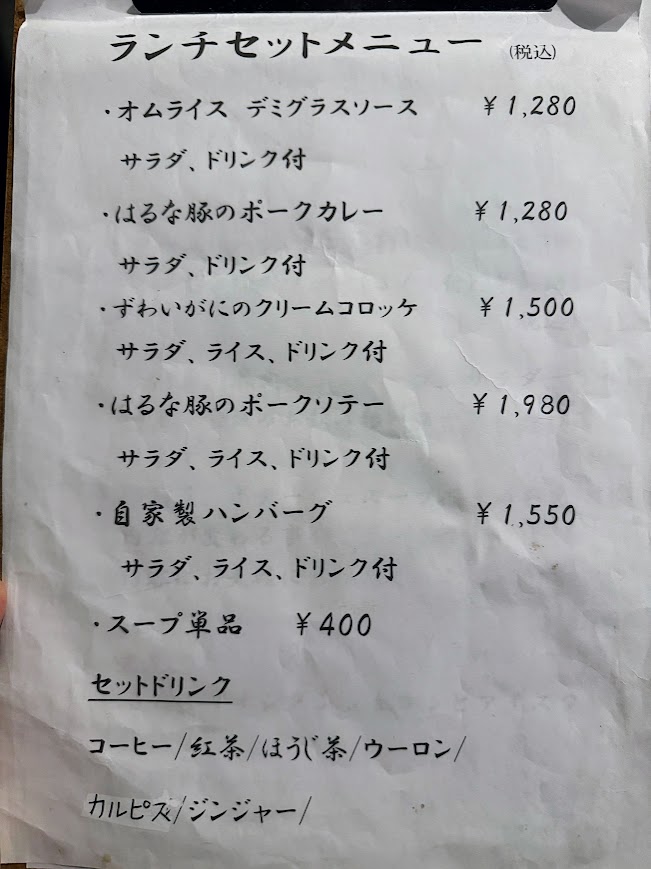 ランチセットメニュー (税込)
・オムライス デミグラスソース ¥1,280
サラダ、ドリンク付
・はるな豚のポークカレー ¥1,280
サラダ、ドリンク付
・ずわいがにのクリームコロッケ ¥1,500
サラダ、ライス、ドリンク付
・はるな豚のポークソテー ¥1,980
サラダ、ライス、ドリンク付
・自家製ハンバーグ ¥1,550
サラダ、ライス、ドリンク付
・スープ単品 ¥400
セットドリンク
コーヒー/紅茶/ほうじ茶/ウーロン/
カルピス/ジンジャー/